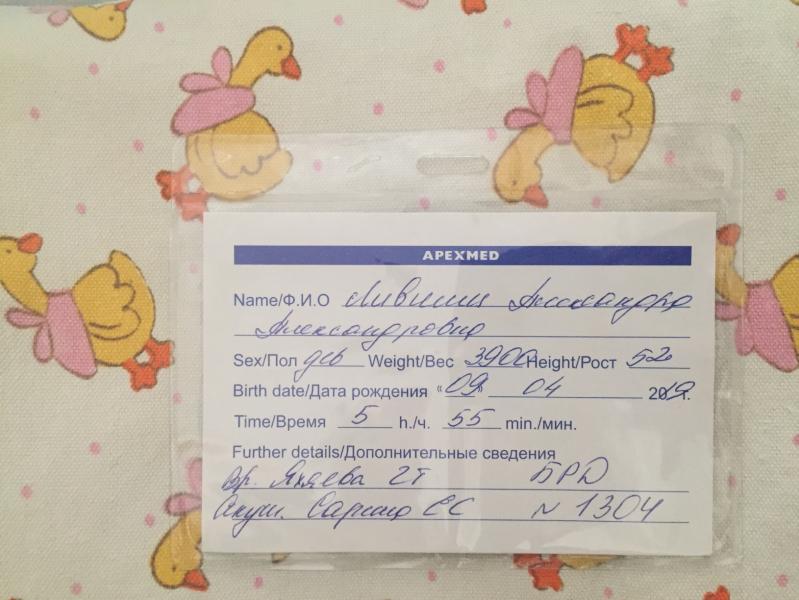 APEXMED
Name/Ф.И.О Лившиц Александра
Александровна
Sex/Пол дев Weight/Вес 3900 Height/Рост 52
Birth date/Дата рождения «09» 04 2019г.
Time/Время 5 h./ч. 55 min./мин.
Further details/Дополнительные сведения
Вр. БРД
Акуш. ЕС N 1304